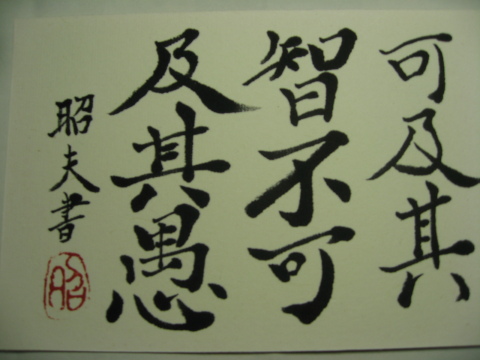 可及其
智不可
及其愚
昭夫書
昭